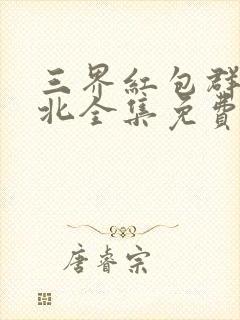 三界紅包群
北全集免費
唐睿宗